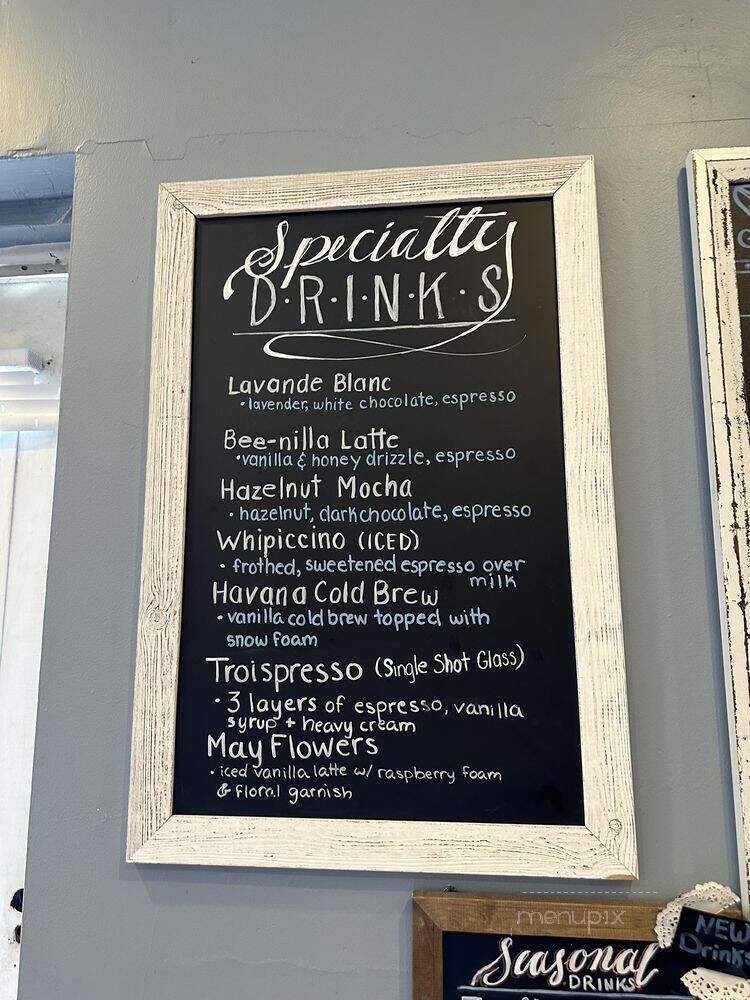 Specialty
D·R·I·N·K·S
Lavande Blanc
• lavender, white chocolate, espresso
Bee-nilla Latte
• vanilla & honey drizzle, espresso
Hazelnut Mocha
• hazelnut, dark chocolate, espresso
Whipiccino (ICED)
• frothed, sweetened espresso over
milk
Havana Cold Brew
• vanilla cold brew topped with
snow foam
Troispresso (Single Shot Glass)
• 3 layers of espresso, vanilla
syrup + heavy cream
May Flowers
• iced vanilla latte w/ raspberry foam
& floral garnish
menupix
Seasonal
DRINKS
NEW
Drinks